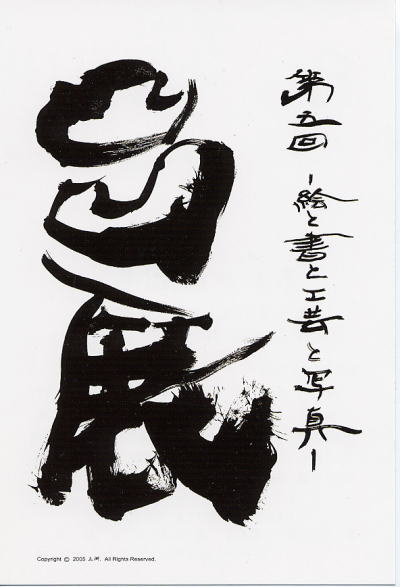 第五回 -絵と書と工芸と写真-
展
Copyright © 2005 All Rights Reserved.